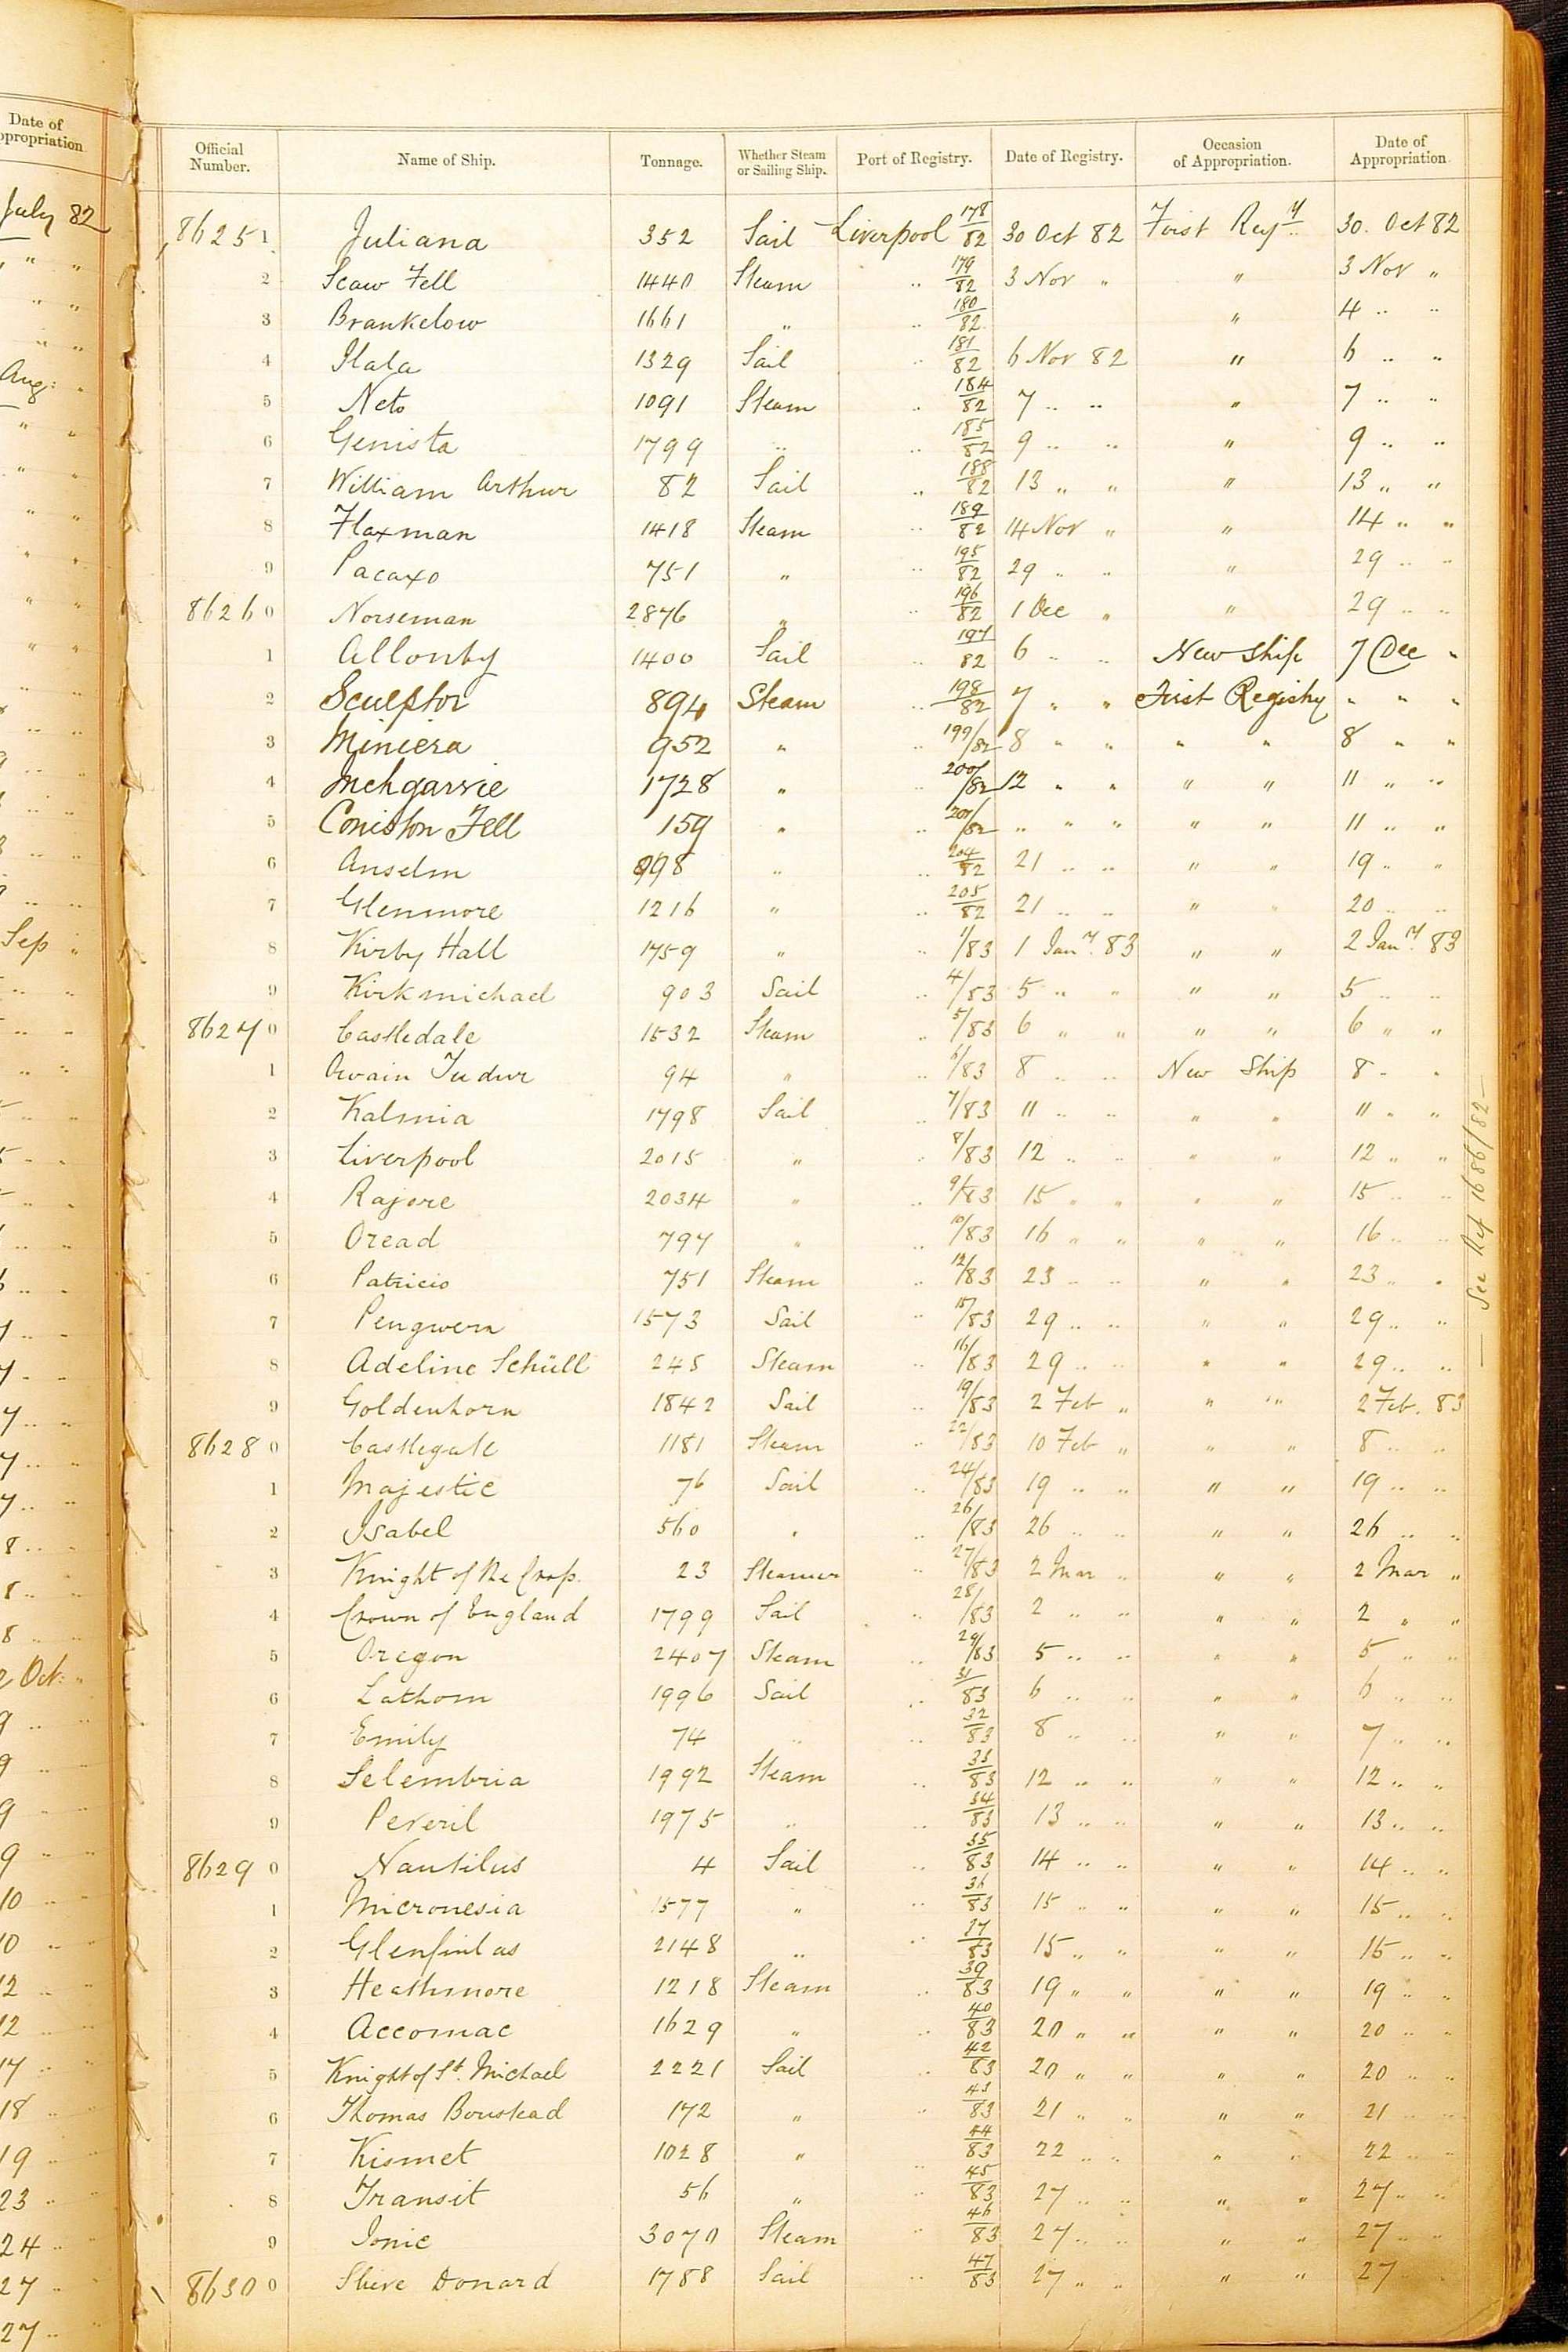 Date of
ppropriation
July 82
Aug:
Sep
Oct:
Official Number. Name of Ship. Tonnage. Whether Steam or Sailing Ship. Port of Registry. Date of Registry. Occasion of Appropriation. Date of Appropriation
86251 Juliana 352 Sail Liverpool 178/82 30 Oct 82 First Regy 30. Oct 82
2 Scaw Fell 1440 Steam .. 179/82 3 Nov " " 3 Nov "
3 Brankelow 1661 " .. 180/82 " 4 .. ..
4 Itala 1329 Sail .. 181/82 6 Nov 82 " 6 .. "
5 Neto 1091 Steam .. 184/82 7 .. .. " 7 .. "
6 Genista 1799 .. .. 185/82 9 .. .. " 9 .. ..
7 William Arthur 82 Sail .. 188/82 13 " " " 13 " "
8 Flaxman 1418 Steam .. 189/82 14 Nov " " 14 .. "
9 Pacaxo 751 " .. 195/82 29 .. .. " 29 .. ..
86260 Norseman 2876 " .. 196/82 1 Dec " " 29 .. ..
1 Allonby 1400 Sail .. 197/82 6 .. .. New Ship 7 Dec "
2 Sculptor 894 Steam .. 198/82 7 " " First Registry " " "
3 Miniera 952 " .. 199/82 8 " " " " 8 " "
4 Inchgarvie 1728 " .. 200/82 12 " " " " 11 " ..
5 Coniston Fell 159 " .. 201/82 .. " " " " 11 .. "
6 Anselm 998 .. .. 204/82 21 .. .. " " 19 .. "
7 Glenmore 1216 " .. 205/82 21 .. .. " " 20 .. ..
8 Kirby Hall 1759 " .. 1/83 1 Jany. 83 " " 2 Jany. 83
9 Kirkmichael 903 Sail .. 4/83 5 .. " " " 5 .. ..
86270 Castledale 1532 Steam .. 5/83 6 " " " " 6 " "
1 Owain Tudur 94 " .. 6/83 8 .. .. New Ship 8 " "
2 Kalmia 1798 Sail .. 7/83 11 .. .. " " 11 " "
3 Liverpool 2015 " .. 8/83 12 .. .. " " 12 " "
4 Rajore 2034 " .. 9/83 15 " " " " 15 .. ..
5 Oread 797 " .. 10/83 16 " " " " 16 .. ..
6 Patricio 751 Steam .. 12/83 23 .. .. " " 23 .. "
7 Pengwern 1573 Sail .. 15/83 29 .. .. " " 29 .. "
8 Adeline Schüll 245 Steam .. 16/83 29 .. .. " " 29 .. ..
9 Goldenhorn 1842 Sail .. 19/83 2 Feb " " " 2 Feb. 83
86280 Castlegate 1181 Steam .. 22/83 10 Feb " " " 8 .. ..
1 Majestic 76 Sail .. 24/83 19 .. .. " " 19 .. ..
2 Isabel 560 " .. 26/83 26 .. .. " " 26 .. ..
3 Knight of the Cross. 23 Steamer .. 27/83 2 Mar .. " " 2 Mar "
4 Crown of England 1799 Sail .. 28/83 2 .. .. " " 2 " "
5 Oregon 2407 Steam .. 29/83 5 .. .. " " 5 .. ..
6 Lathom 1996 Sail .. 31/83 6 .. .. " " 6 .. ..
7 Emily 74 .. .. 32/83 8 .. .. " " 7 .. ..
8 Selembria 1992 Steam .. 33/83 12 .. .. " " 12 .. "
9 Peveril 1975 .. .. 34/83 13 .. .. " " 13 .. ..
86290 Nautilus 4 Sail .. 35/83 14 .. .. " " 14 .. "
1 Micronesia 1577 " .. 36/83 15 .. .. " " 15 .. ..
2 Glenfinlas 2148 .. .. 37/83 15 .. " " " 15 .. ..
3 Heathmore 1218 Steam .. 39/83 19 " " " " 19 .. "
4 Accomac 1629 " .. 40/83 20 " " " " 20 .. "
5 Knight of St. Michael 2221 Sail .. 42/83 20 " " " " 20 .. ..
6 Thomas Boustead 172 " .. 43/83 21 " " " " 21 .. ..
7 Kismet 1028 " .. 44/83 22 .. .. " " 22 .. ..
8 Transit 56 " .. 45/83 27 .. .. " " 27 .. ..
9 Ionic 3070 Steam .. 46/83 27 .. .. " " 27 .. "
86300 Slieve Donard 1788 Sail .. 47/83 27 " " " " 27
See Rep 1686/82